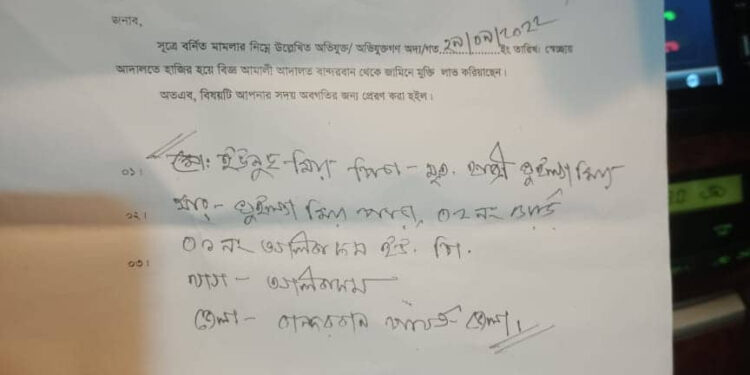 জনাব,
সূত্রে বর্ণিত মামলার নিম্নে উল্লেখিত অভিযুক্ত/ অভিযুক্তগণ অদ্য/গত, ২৯/০৯/২০২২ ইং তারিখ স্বেচ্ছায়
আদালতে হাজির হয়ে বিজ্ঞ আমলী আদালত বান্দরবান থেকে জামিনে মুক্তি লাভ করিয়াছেন।
অতএব, বিষয়টি আপনার সদয় অবগতির জন্য প্রেরণ করা হইল।
০১। মোঃ ইউনুছ মিয়া পিতা - মৃত. হাজী মিয়া
সাং - মিয়া পাড়া, ০২ নং ওয়ার্ড
০২।
০১ নং আলীকদম ইউ. পি.
০৩।
থানা - আলীকদম
জেলা - বান্দরবান পার্বত্য জেলা।